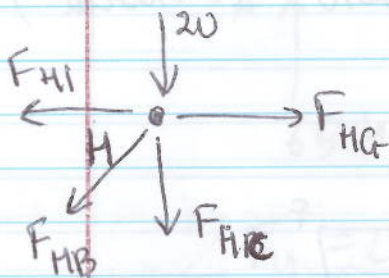 20
F HI
F HG
H
F HB
F HC